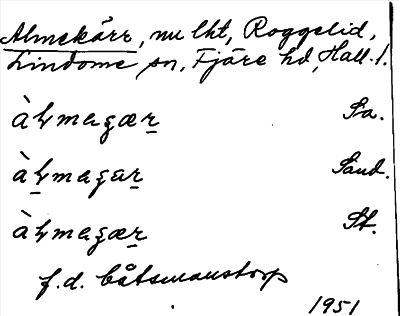 Almekärr, nu lht, Roggelid,
Lindome sn, Fjäre hd, Hall. l.
àɫmagær Sa.
àɫmagar Sand.
àɫmagær St.
f.d. båtsmanstorp
1951